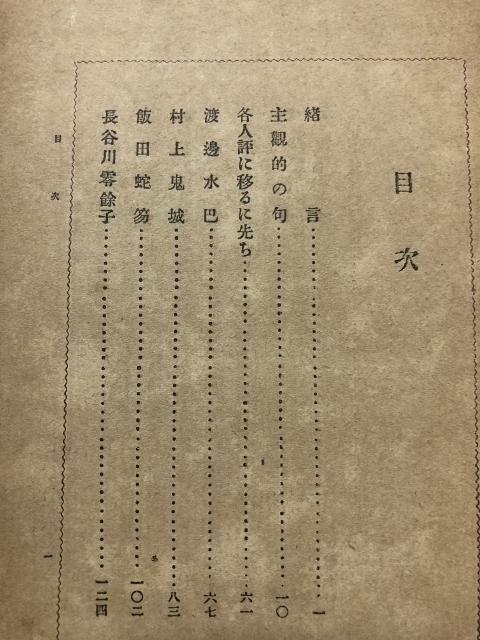 目次
緒言……一
主觀的の句……一〇
各人評に移るに先ち……六一
渡邊水巴……六七
村上鬼城……八三
飯田蛇笏……一〇二
長谷川零餘子……一二四
目次
一